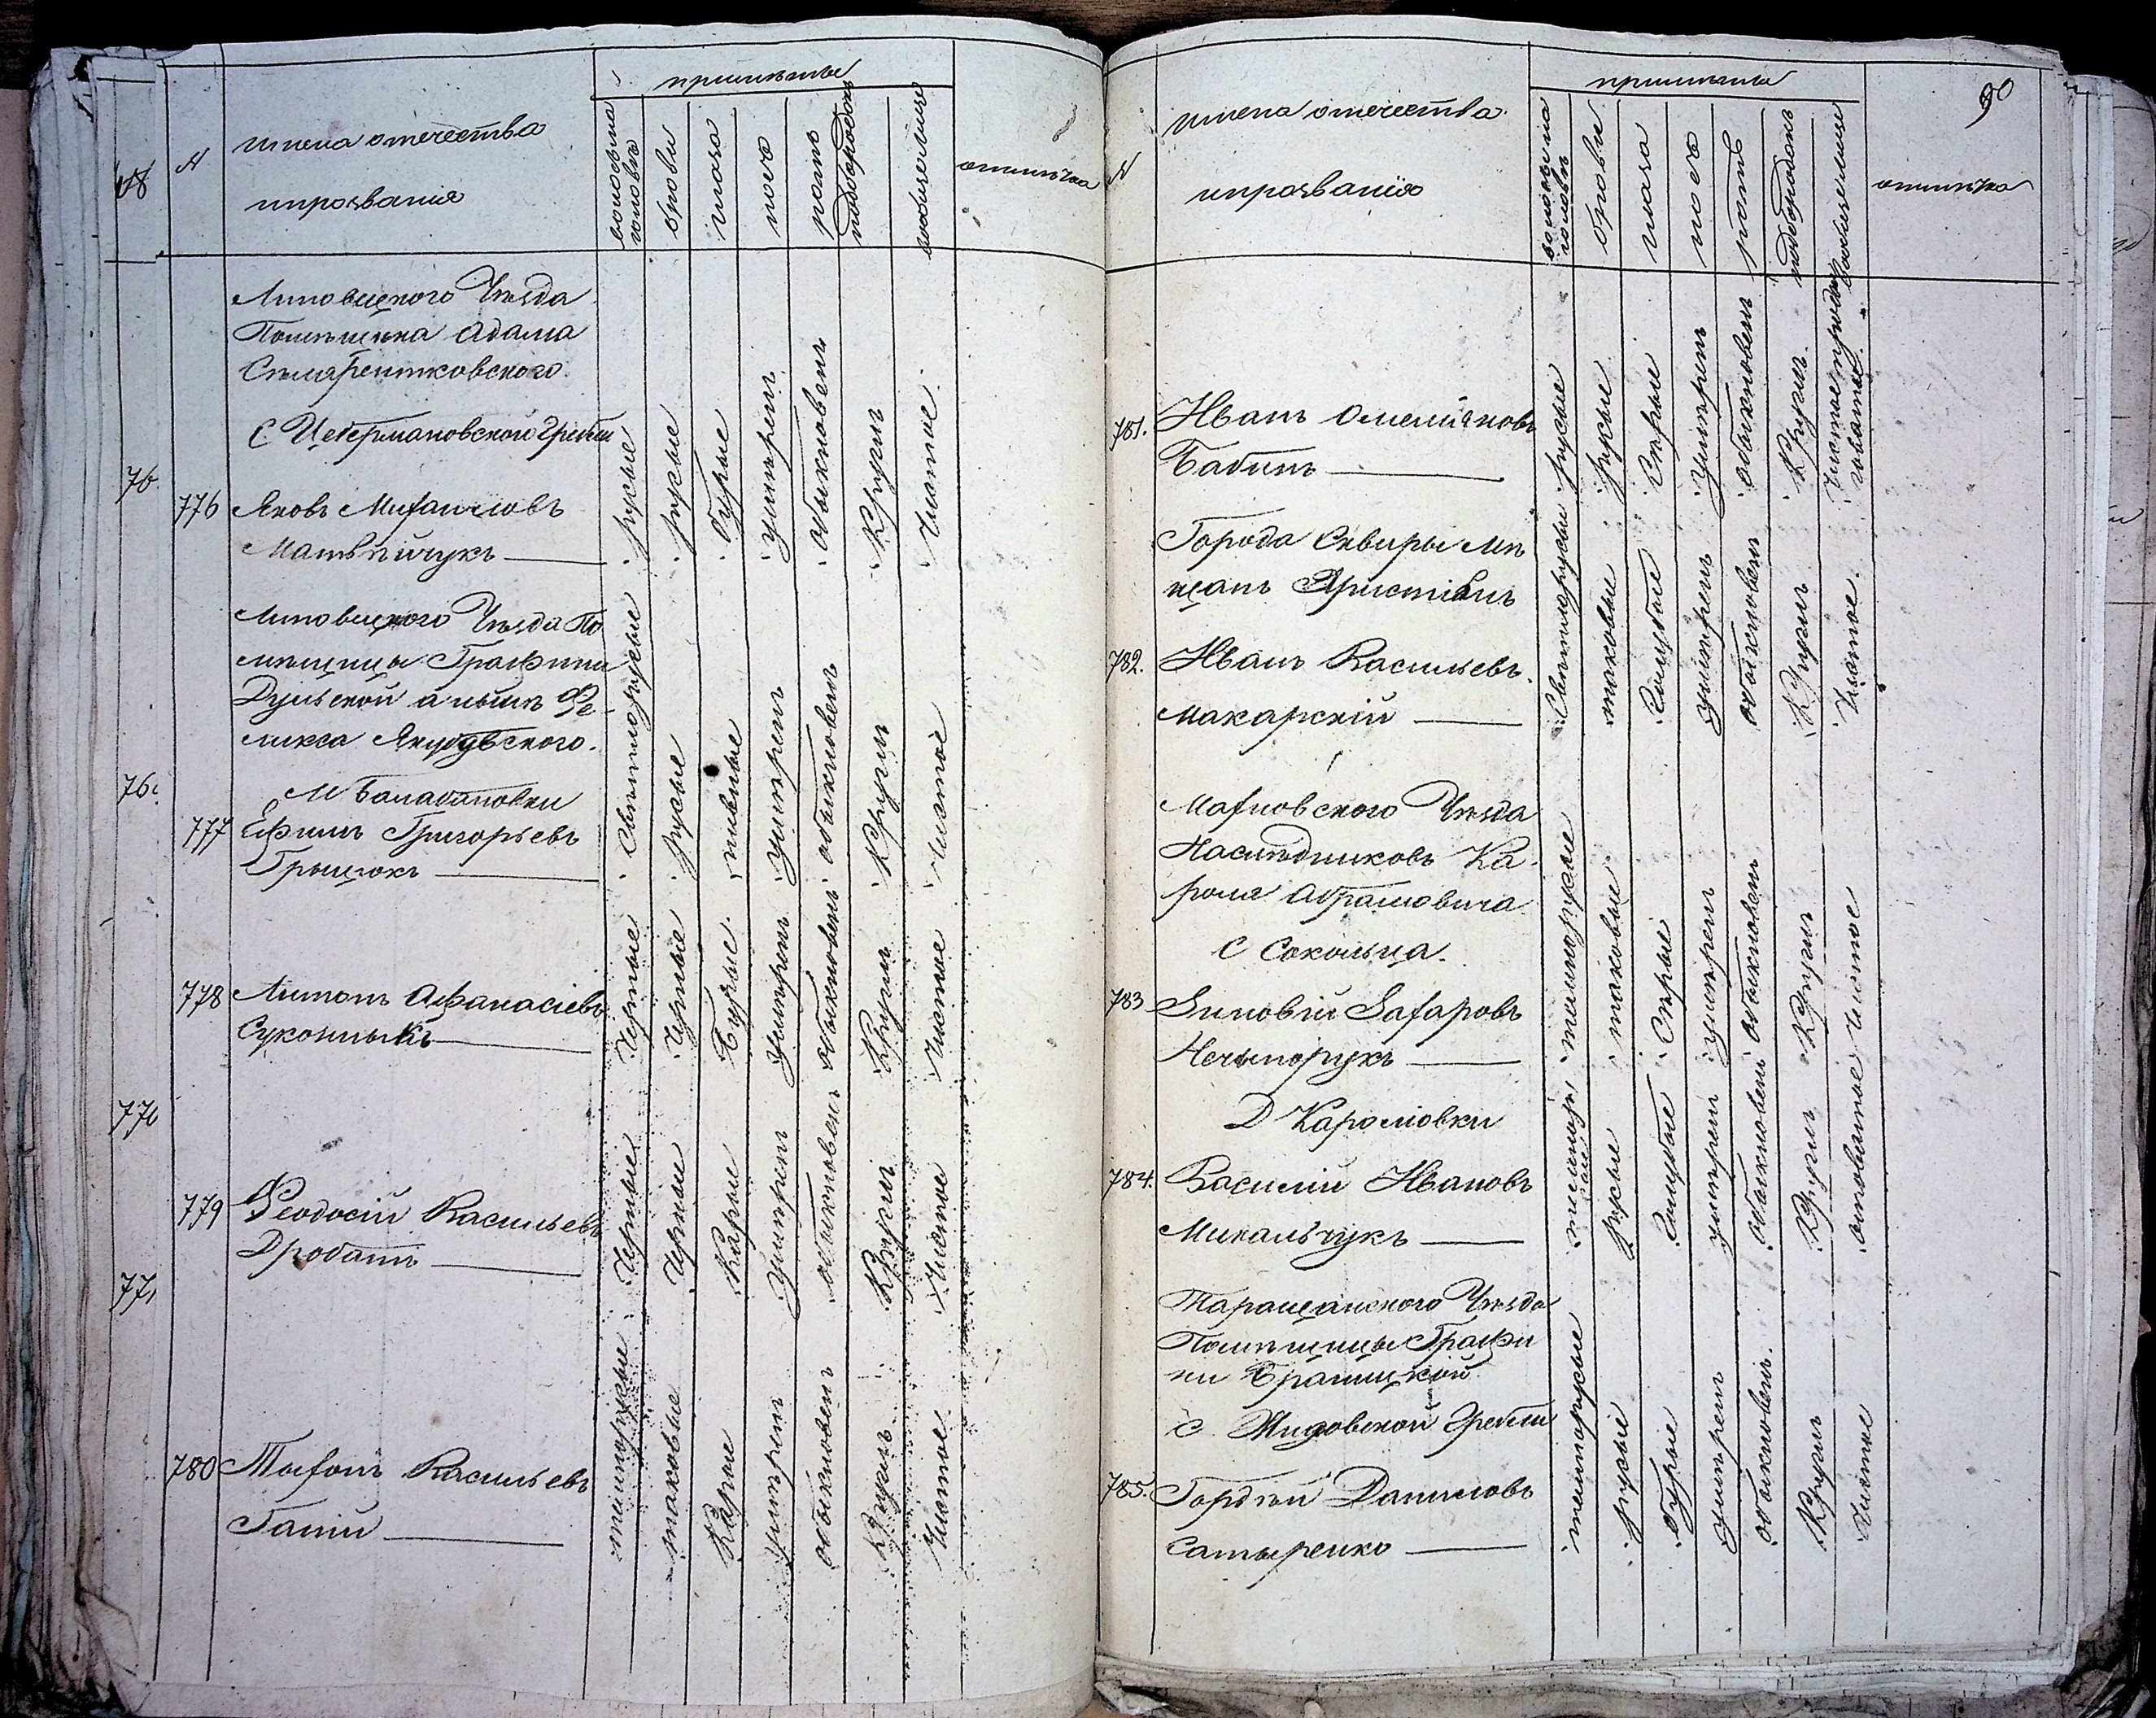 №
имена отечества
ипрозвания
приметы
волосы на
головѣ
брови
глаза
носъ
ротъ
подбородокъ
вообще лице
отмѣтка
Липовецкого Уѣзда
Помѣщика Адама
С Цебермановской Гребли
76
776
Яковъ Михайловъ
Матвѣйчукъ
русые
русые
бурые
умѣрен
обыкновен
Кругл
Чистое
Липовецкого Уѣзда По
мѣщицы Графини
а нынѣ Фе
ликса
М Балабановки
76
777
Ефимъ Григорьевъ
Грыцюкъ
Свѣтлорусые
русые
пивные
умѣрен
обыкновен
Кругл
Чистое
778
Антонъ Афанасіевъ
Черные
Черные
Бурые
умѣрен
обыкновен
Кругл
Чистое
770
779
Феодосій Васильевъ
Дробатъ
Черные
Черные
Карые
умѣрен
обыкновен
Кругл
Чистое
771
780
Тыхонъ Васильевъ
Гапій
темнорусые
таковые
Карые
умѣрен
обыкновен
Кругл
Чистое
90
№
имена отечества
ипрозванія
приметы
волосы на
головѣ
брови
глаза
носъ
ротъ
подбородокъ
вообще лице
отмѣтка
781.
Иванъ Омеляновъ
Бабинъ
русые
русые
Сѣрые
умѣрен
обыкновен
Кругл
Города Сквиры мѣ
щанъ Христіянъ
782.
Иванъ Васильевъ
Макарскій
Свѣтлорусые
таковые
Голубые
умѣрен
обыкновен
Кругл
Чистое
Махновского Уѣзда
Наслѣдниковъ Ка
роля Абрамовича
С Сокольца
783
Зиновій Захаровъ
Нечыпорукъ
темнорусые
таковые
Сѣрые
умѣрен
обыкновен
Кругл
Чистое
Д Каролювки
784.
Василий Ивановъ
Михальчукъ
русые
Голубые
умѣрен
обыкновен
Кругл
Таращанского Уѣзда
Помѣщицы Графи
ни Браницкой
С Жидовской Гребли
785.
Гордѣй Даниловъ
Сатыренко
темнорусые
русые
бурые
умѣрен
обыкновен.
Кругл
Чистое